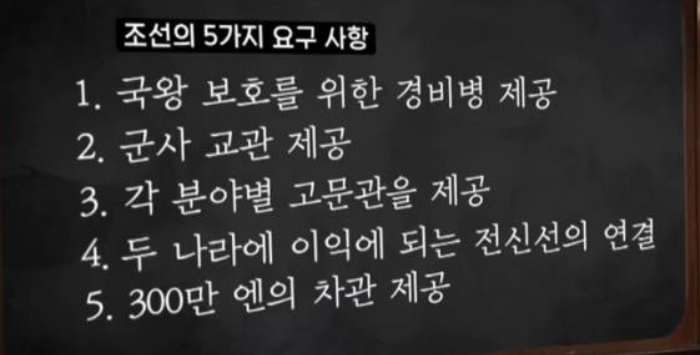 조선의 5가지 요구 사항
1. 국왕 보호를 위한 경비병 제공
2. 군사 교관 제공
3. 각 분야별 고문관을 제공
4. 두 나라에 이익에 되는 전신선의 연결
5. 300만 엔의 차관 제공